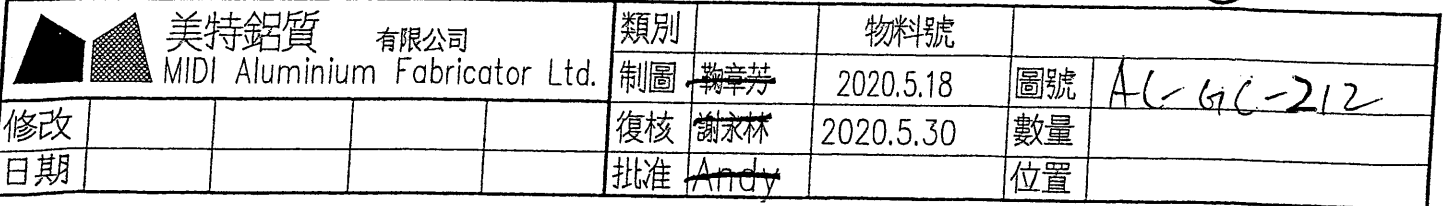 美特鋁質 有限公司
MIDI Aluminium Fabricator Ltd.
類別 物料號
制圖 鞠章芳 2020.5.18 圖號 AC-GC-212
修改 復核 謝永林 2020.5.30 數量
日期 批准 Andy 位置